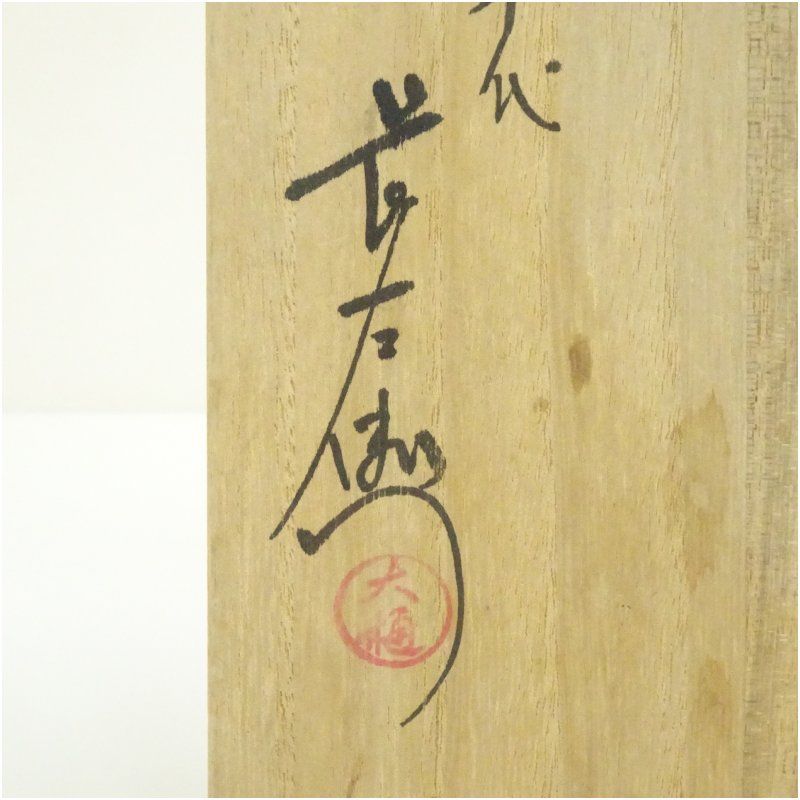 代
長左衛門
大樋